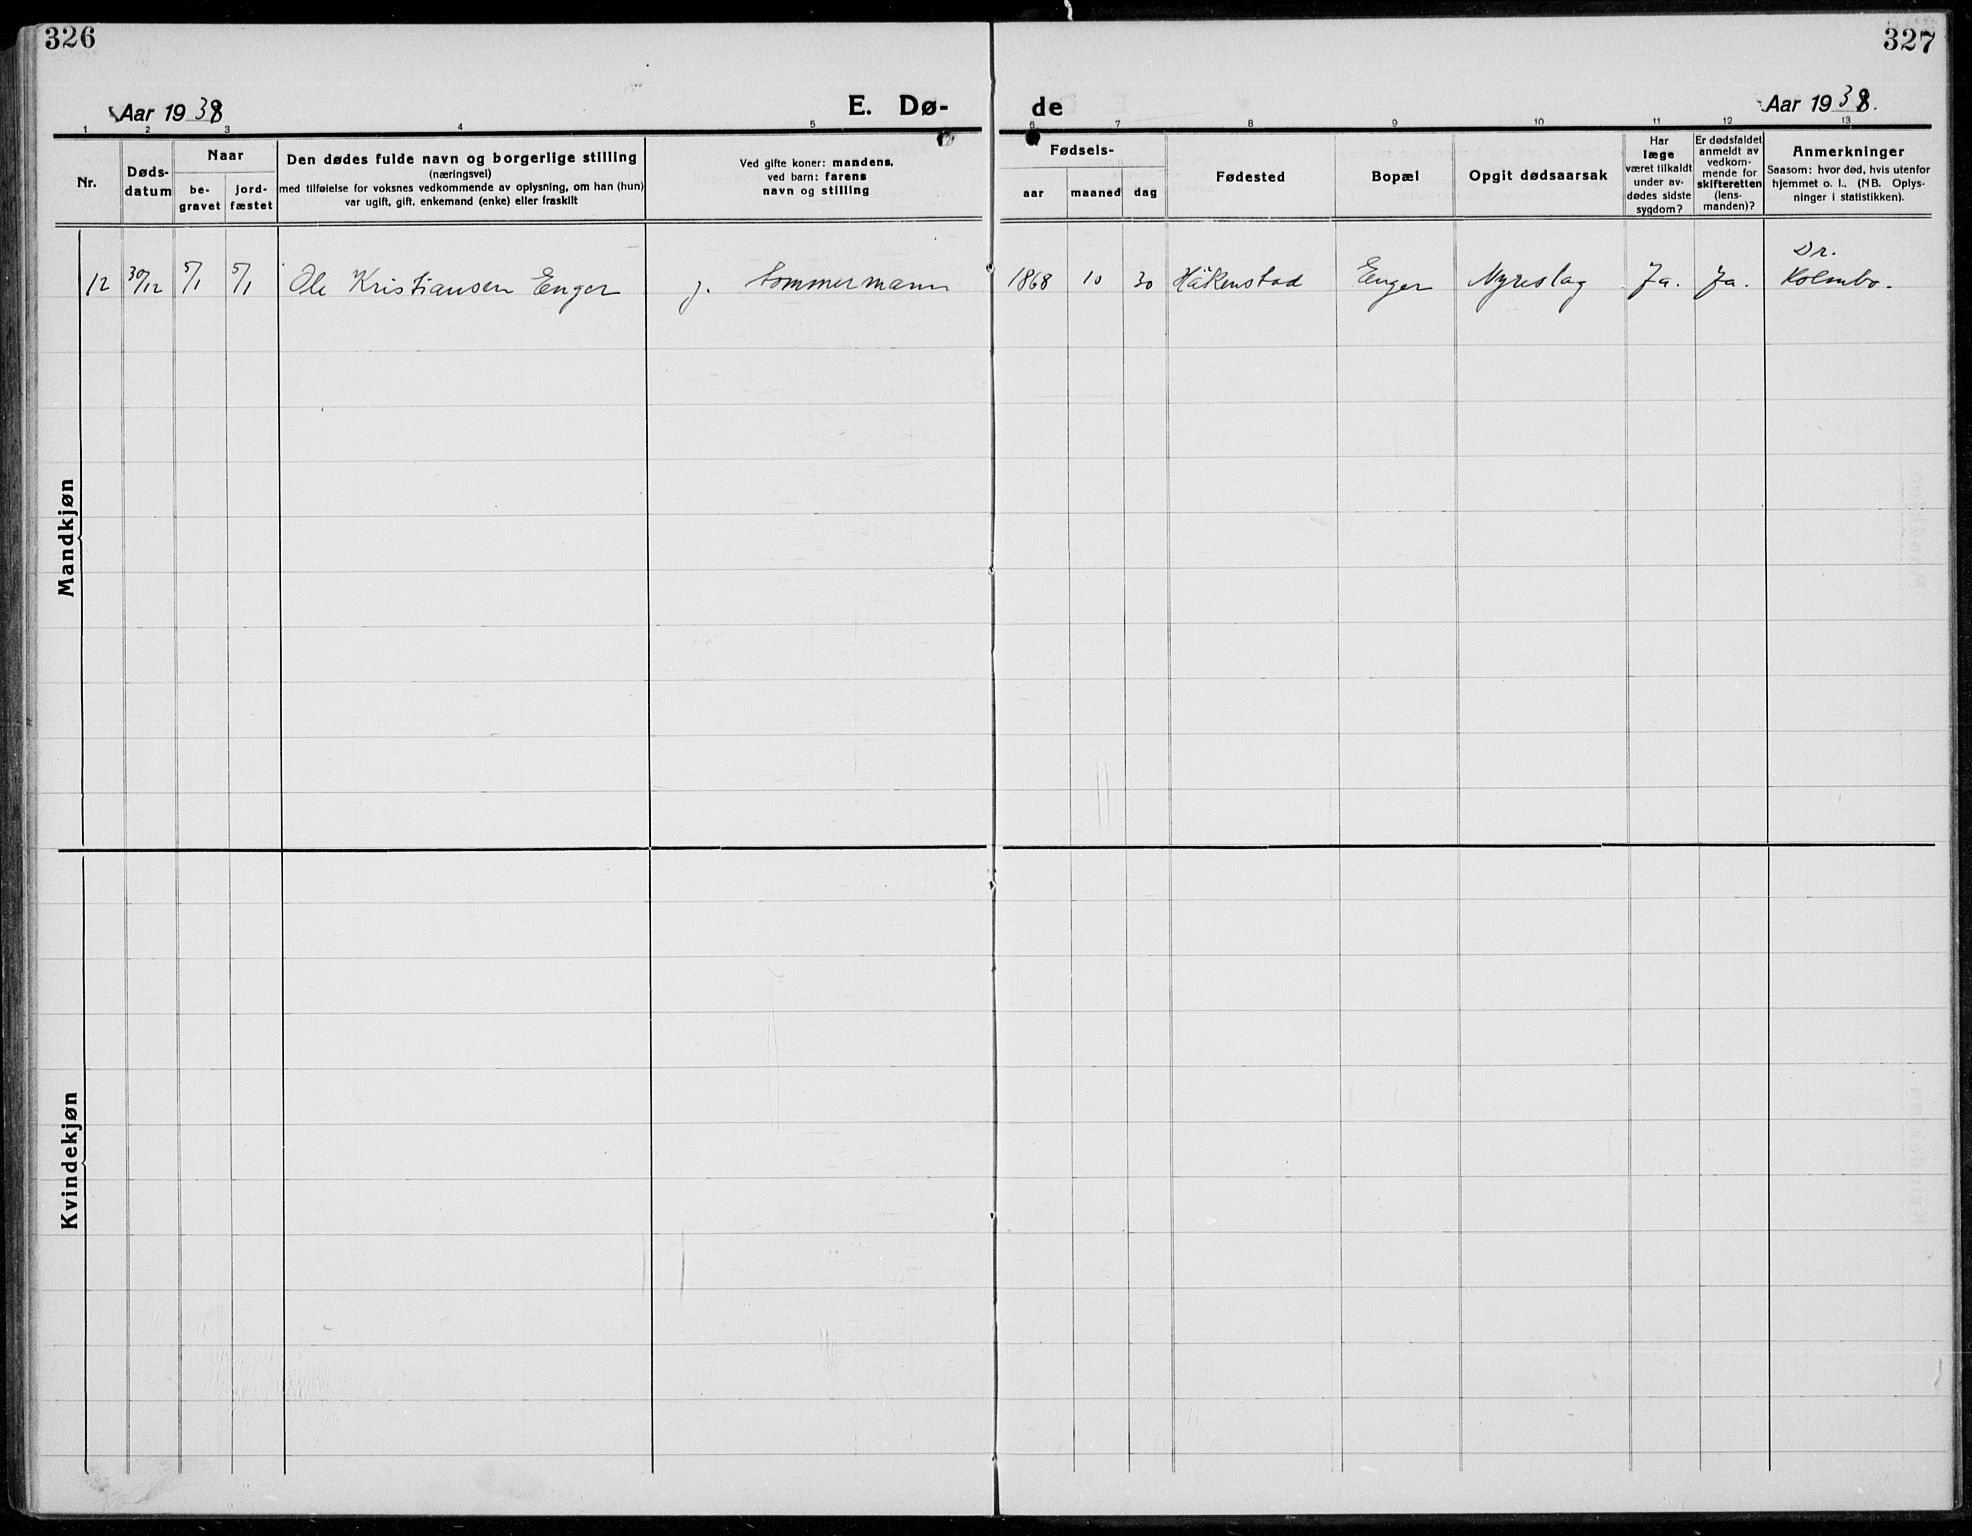 326
327
Aar 1938
E. Dø-
de
Aar 1938.
1 2 3 4 5 6 7 8 9 10 11 12 13
Nr.
Døds-
datum
Naar
be-
gravet
jord-
fæstet
Den dødes fulde navn og borgerlige stilling
(næringsvei)
med tilføielse for voksnes vedkommende av oplysning, om han (hun)
var ugift, gift, enkemand (enke) eller fraskilt
Ved gifte koner: mandens,
ved barn: farens
navn og stilling
Fødsels-
aar maaned dag
Fødested
Bopæl
Opgit dødsaarsak
Har
læge
været tilkaldt
under av-
dødes sidste
sygdom?
Er dødsfaldet
anmeldt av
vedkom-
mende for
skifteretten
(lens-
manden)?
Anmerkninger
Saasom: hvor død, hvis utenfor
hjemmet o. l.. (NB. Oplys-
ninger i statistikken).
12 30/12 5/1 5/1 Ole Kristiansen Enger g. tømmermann 1868 10 30 Håkenstad Enger Nyreslag Ja. Ja. Dr.
Kolmbo.
Mandkjøn
Kvindekjøn